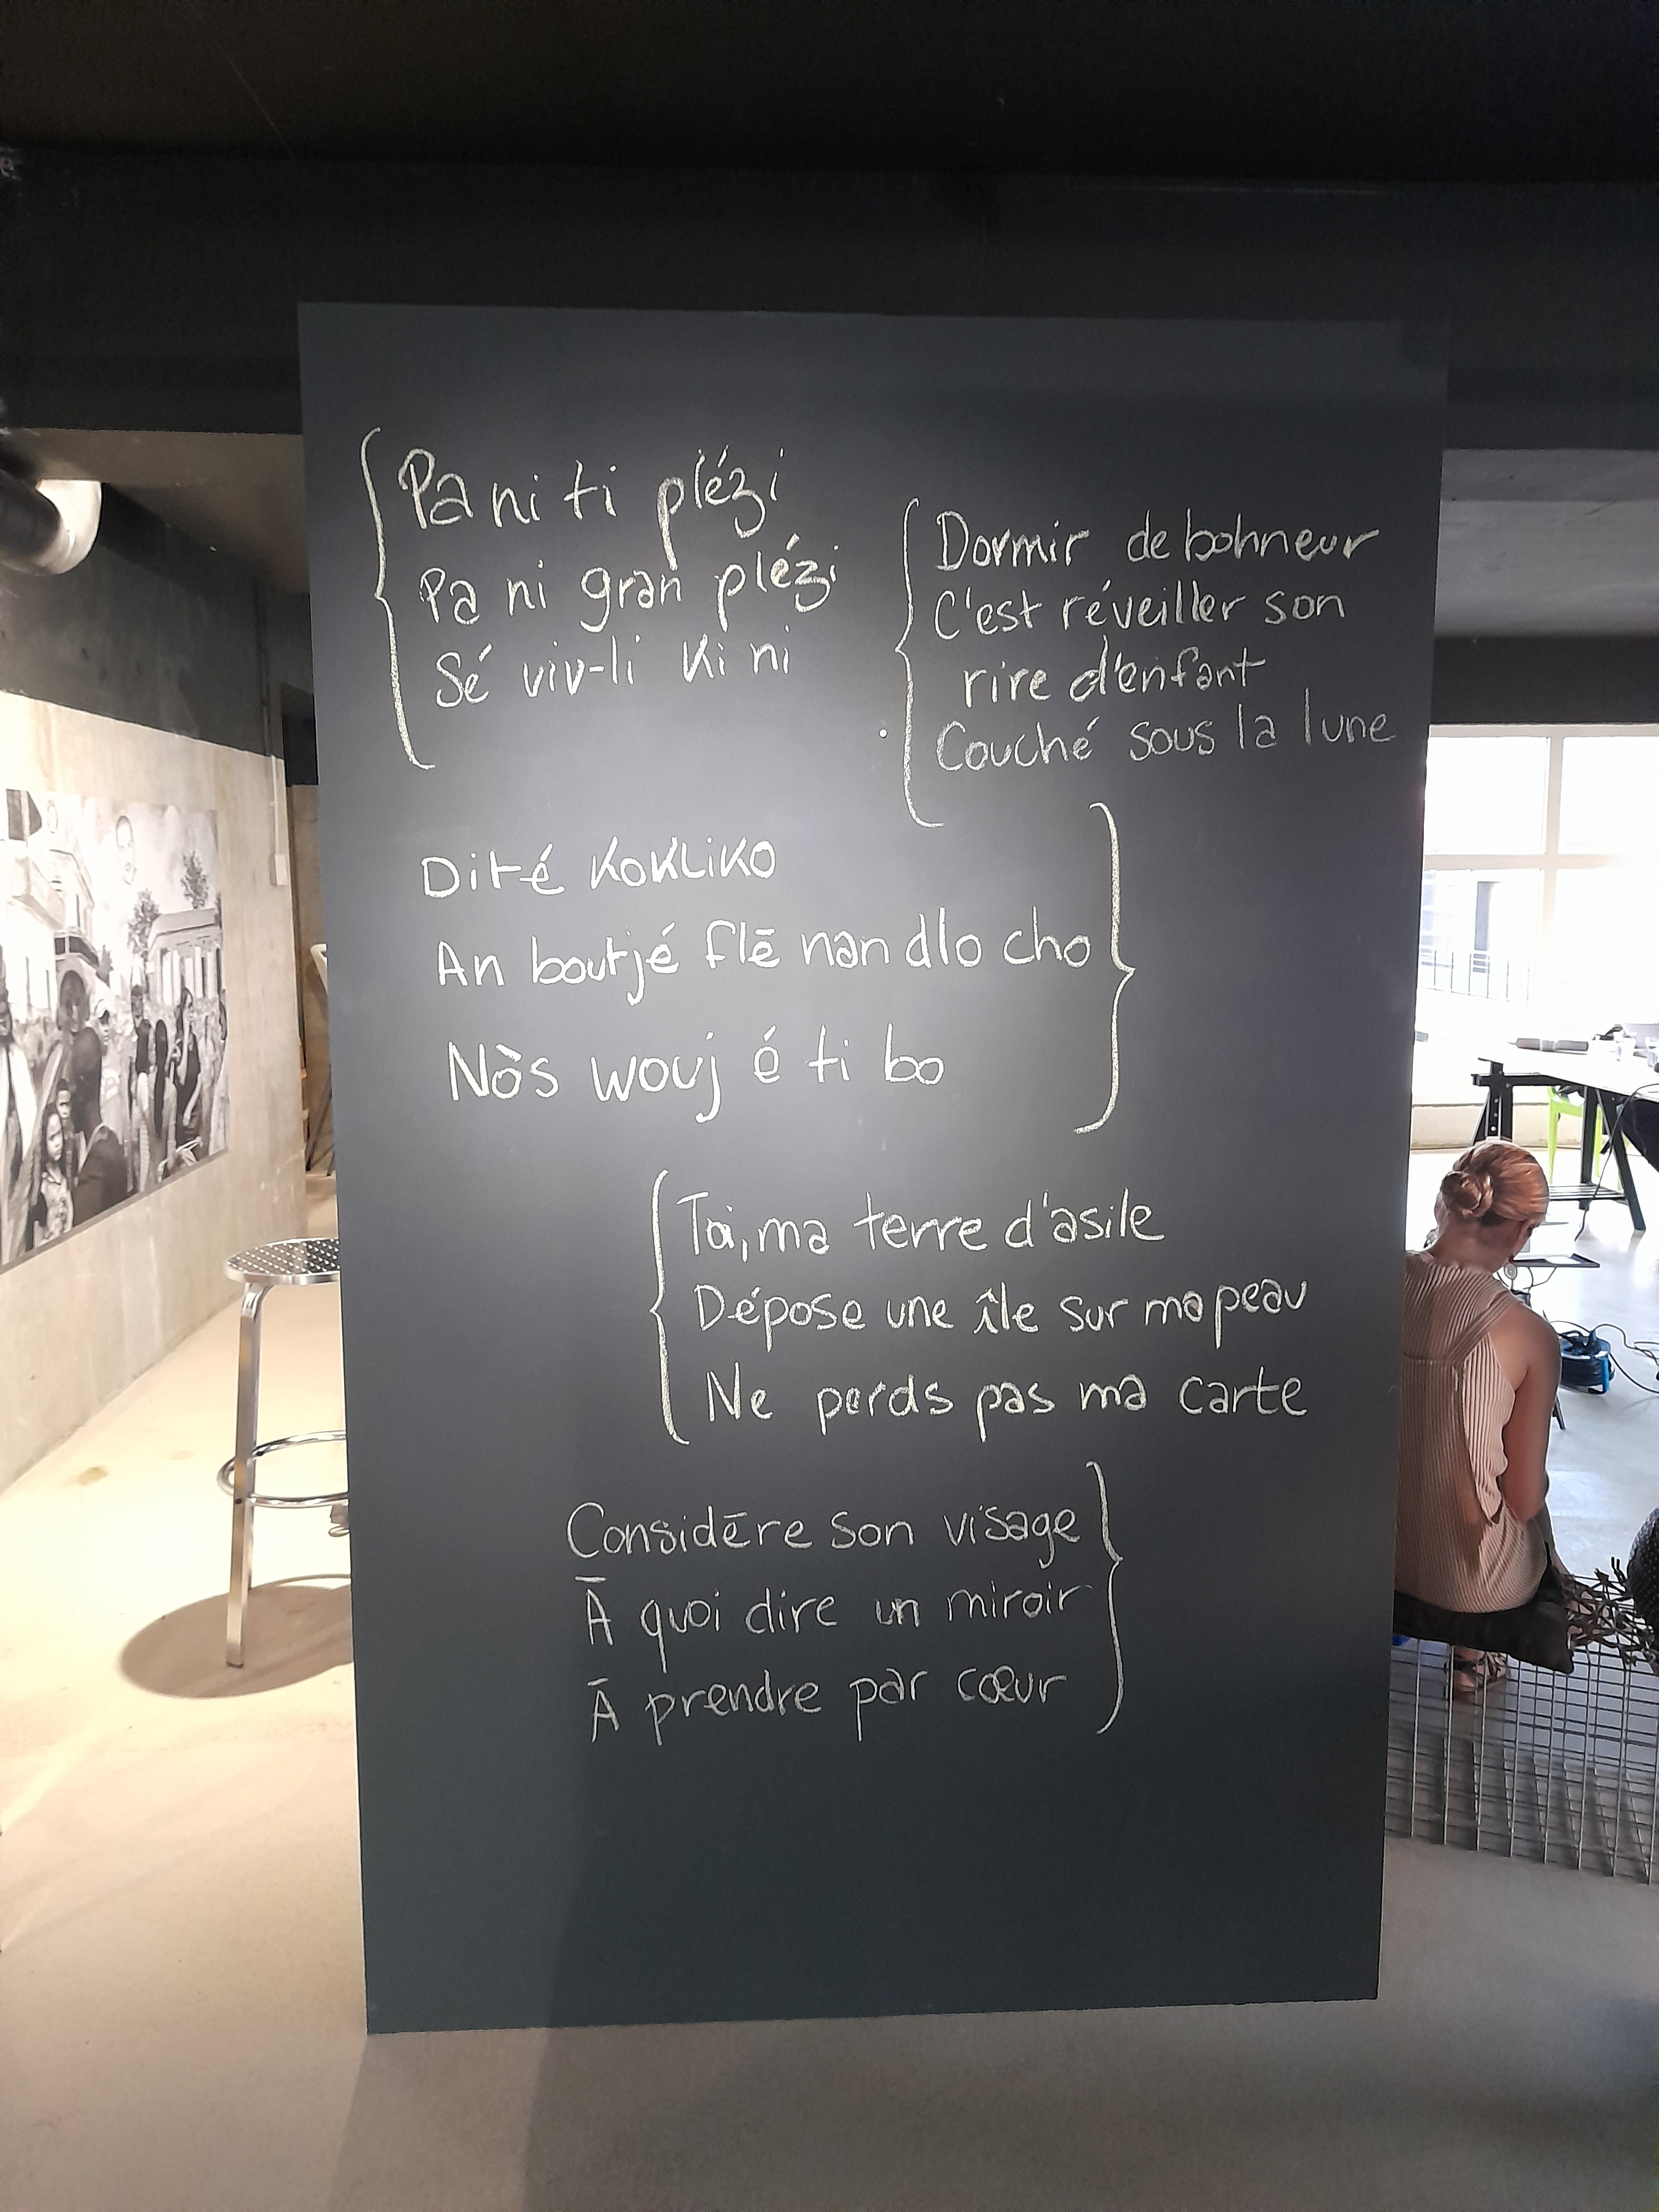 Pa ni ti plézi
Pa ni gran plézi
Sé viv-li ki ni
Dormir de bohneur
C'est réveiller son
rire d'enfant
Couché sous la lune
Dité KOKLIKO
An boutjé flē nan dlo cho
Nòs wouj é ti bo
Toi, ma terre d'asile
Dépose une île sur ma peau
Ne perds pas ma carte
Considēre son visage
Ā quoi dire un miroir
Ā prendre par cœur